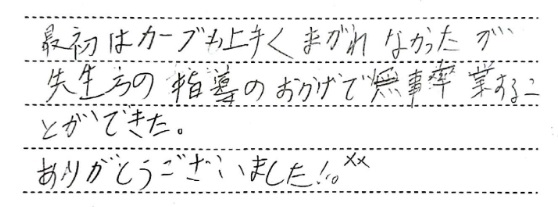 最初はカーブも上手くまがれなかったが
先生方の指導のおかげで無事率業するこ
とができた。
ありがとうございました!。××